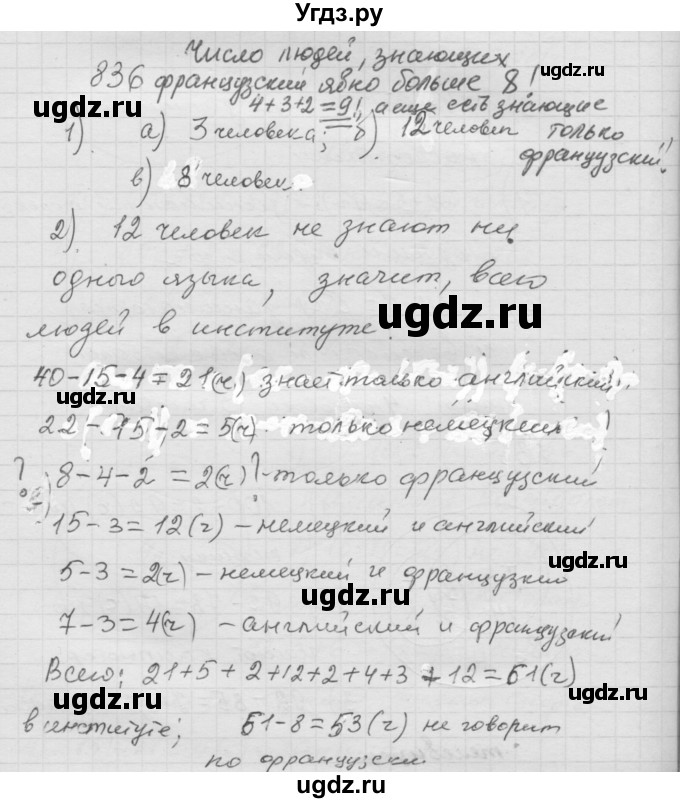 Угдз.ру
Число людей, знающих
836 французский явно больше 8!
4+3+2=9!, а еще есть знающие
1). а) 3 человека; б) 12 человек только
французский!
в) 8 человек.
2). 12 человек не знают ни
одного языка, значит, всего
людей в институте:
40-15-4=21(ч) знает только английский,
22-15-2=5(ч) только немецкий
? 8-4-2=2(ч)?-только французский
15-3=12(ч)-немецкий и английский
5-3=2(ч)-немецкий и французкий
7-3=4(ч)-английский и французский
Всего: 21+5+2+12+2+4+3+12=61(ч)
в институте; 61-8=53(ч) не говорит
по французски.
uagdz.ru
uagdz.ru
uagdz.ru
uagdz.ru
uagdz.ru
uagdz.ru
uagdz.ru
uagdz.ru
uagdz.ru
uagdz.ru
uagdz.ru